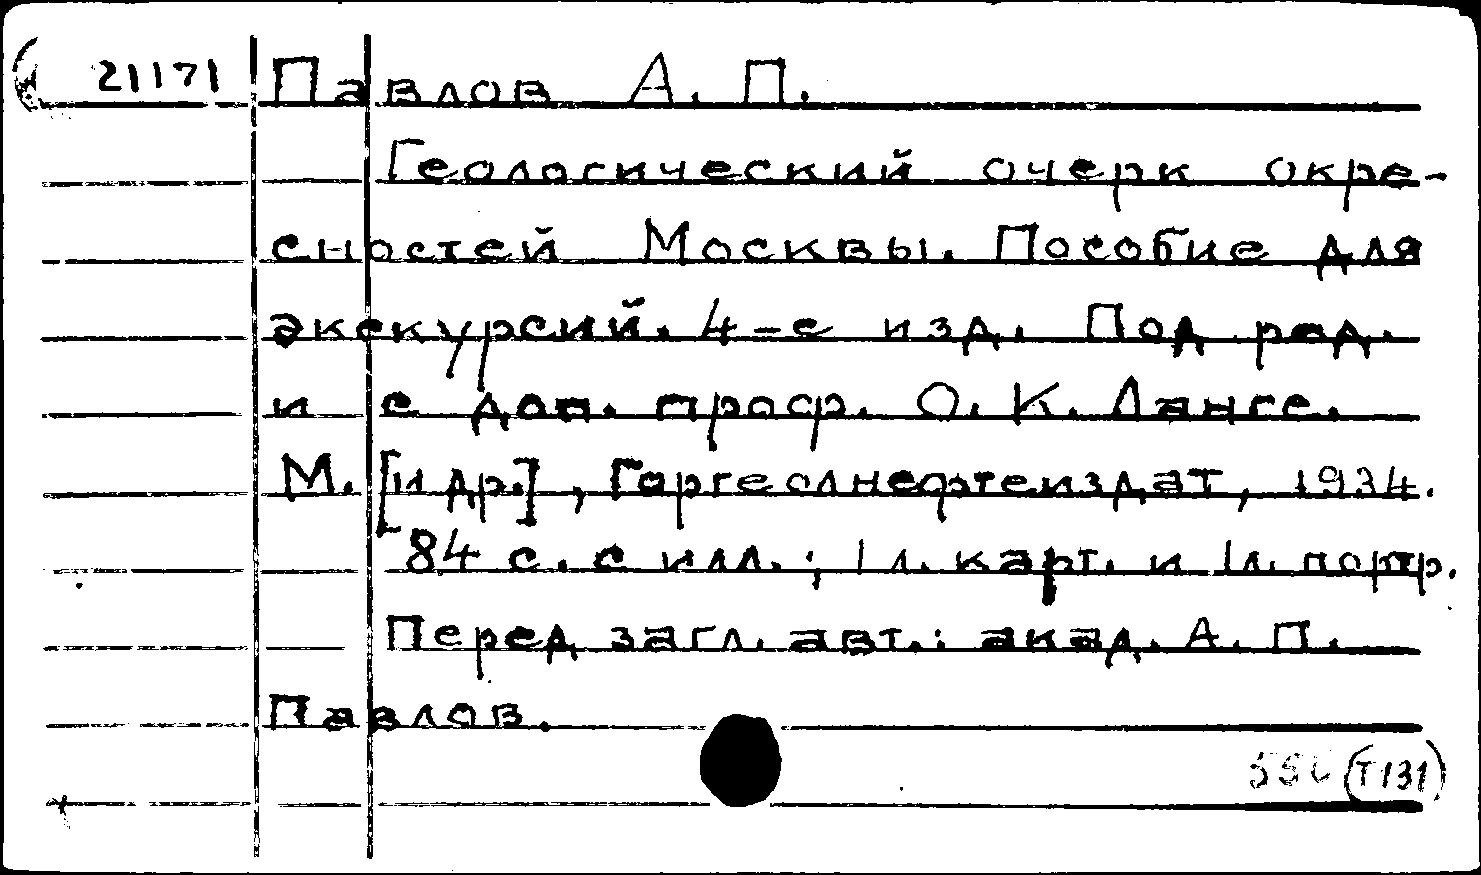 21171 Павлов А. П.
Геологический очерк окре-
сностей Москвы. Пособие для
экскурсий. 4-е изд. Под ред.
и с доп. проф. О. К. Ланге.
М. [и др.], Горгеолнефтеиздат, 1934.
84 с. с илл.; 1 л. карт. и 1 л. портр.
Перед загл. авт.: акад. А. П.
Павлов.
(Т131)